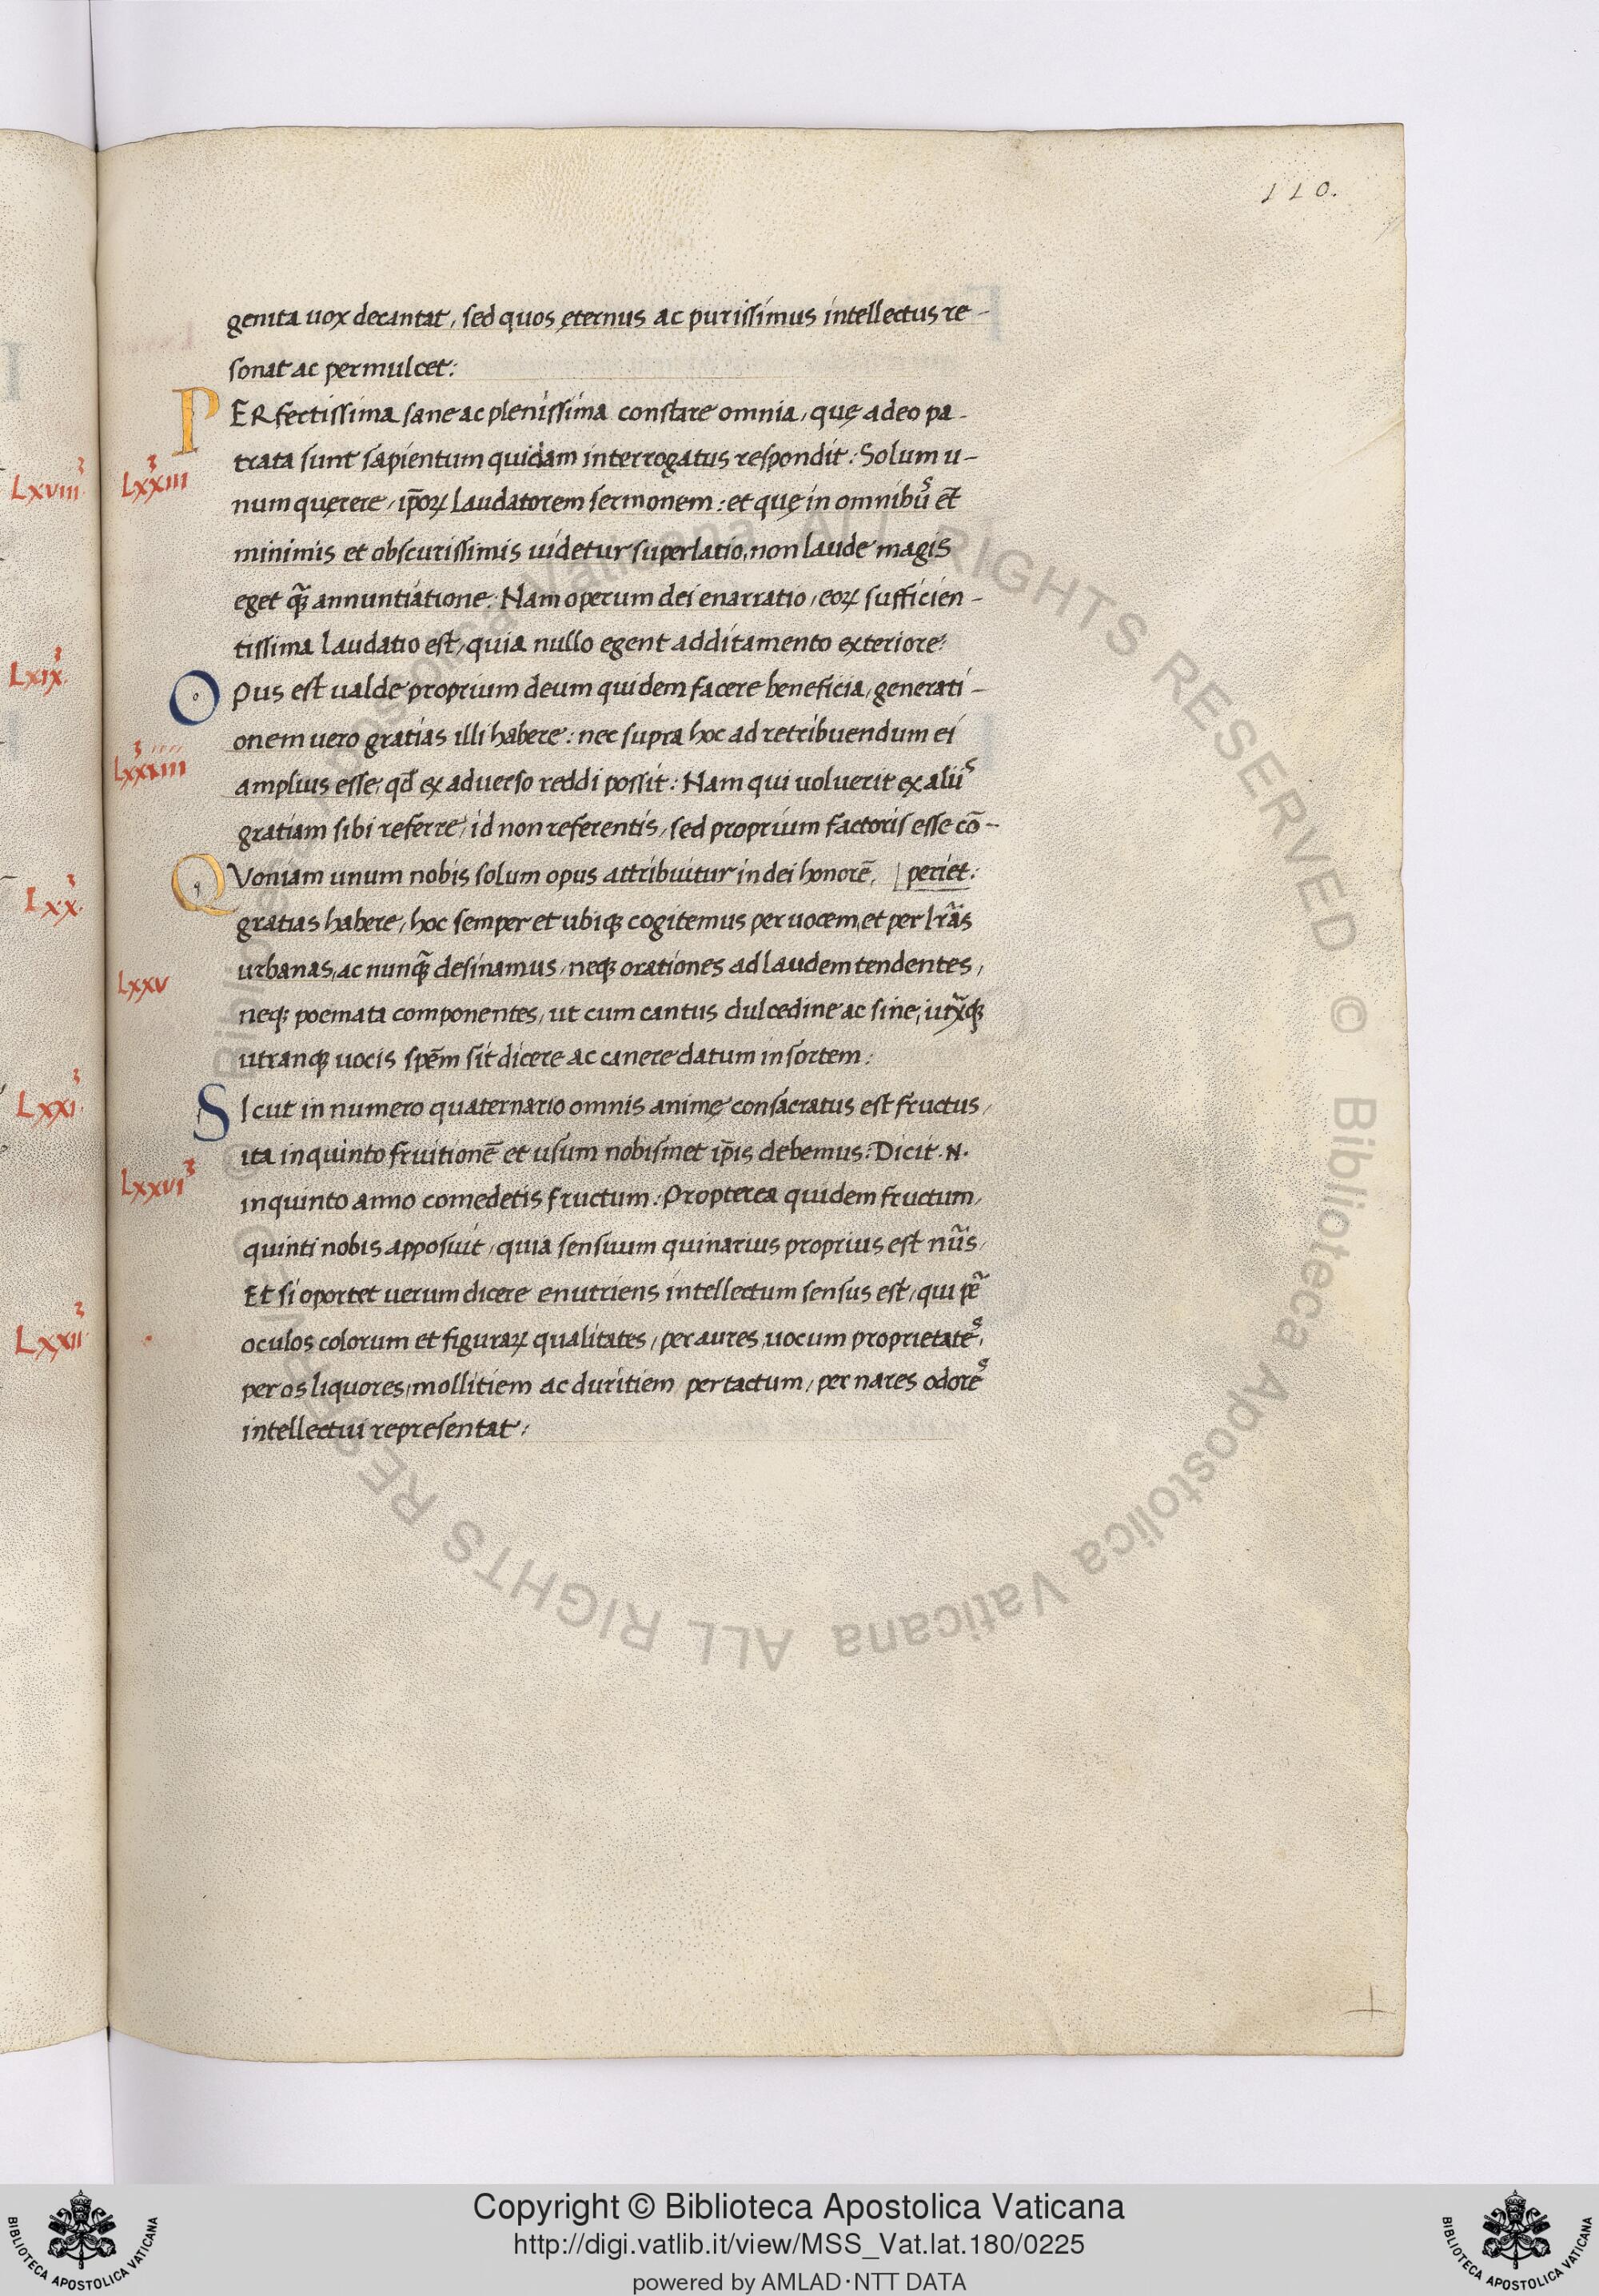 110.
genita uox decantat, sed quos ęternus ac purissimus intellectus re-
sonat ac permulcet:
PERfectissima sane ac plenissima constare omnia, quę adeo pa-
trata sunt sapientum quidam interrogatus respondit: Solum u-
num quęrere, ip̄oꝝ laudatorem sermonem: et quę in omnibus et
minimis et obscurissimis uidetur superlatio, non laude magis
eget qꝫ̃ annuntiatione: Nam operum dei enarratio, eoꝝ sufficien-
tissima laudatio est, quia nullo egent additamento exteriore:
Opus est ualde proprium deum quidem facere beneficia, generati-
onem uero gratias illi habere: nec supra hoc ad retribuendum ei
amplius esse, qđ ex aduerso reddi possit: Nam qui uoluerit ex aliis
gratiam sibi referre, id non referentis, sed proprium factoris esse cō-
QVoniam unum nobis solum opus attribuitur in dei honorē, | periet:
gratias habere, hoc semper et ubiqꝫ cogitemus per uocem, et per lr̃as
urbanas, ac nunqꝫ̃ desinamus, neqꝫ orationes ad laudem tendentes,
neqꝫ poemata componentes, ut cum cantus dulcedine ac sine,
utranqꝫ uocis spēm sit dicere ac canere datum in sortem:
SIcut in numero quaternario omnis animę consacratus est fructus,
ita in quinto fruitionē et usum nobismet ip̄is debemus: Dicit .N.
in quinto anno comedetis fructum: Propterea quidem fructum,
quinti nobis apposuit, quia sensuum quinarius proprius est nũs,
Et si oportet uerum dicere enutriens intellectum sensus est, qui
oculos colorum et figuraꝝ qualitates, per aures, uocum proprietates,
per os liquores, mollitiem ac duritiem per tactum, per nares odores
intellectui representat:
Lxxiii
Lxxiiii
Lxxv
Lxxvi
Lxviii
Lxix
Lxx
Lxxi
Lxxii
© Biblioteca Apostolica Vaticana ALL RIGHTS RESERVED © Biblioteca Apostolica Vaticana ALL RIGHTS RESERVED
Copyright © Biblioteca Apostolica Vaticana
http://digi.vatlib.it/view/MSS_Vat.lat.180/0225
powered by AMLAD·NTT DATA
BIBLIOTECA APOSTOLICA VATICANA
BIBLIOTECA APOSTOLICA VATICANA